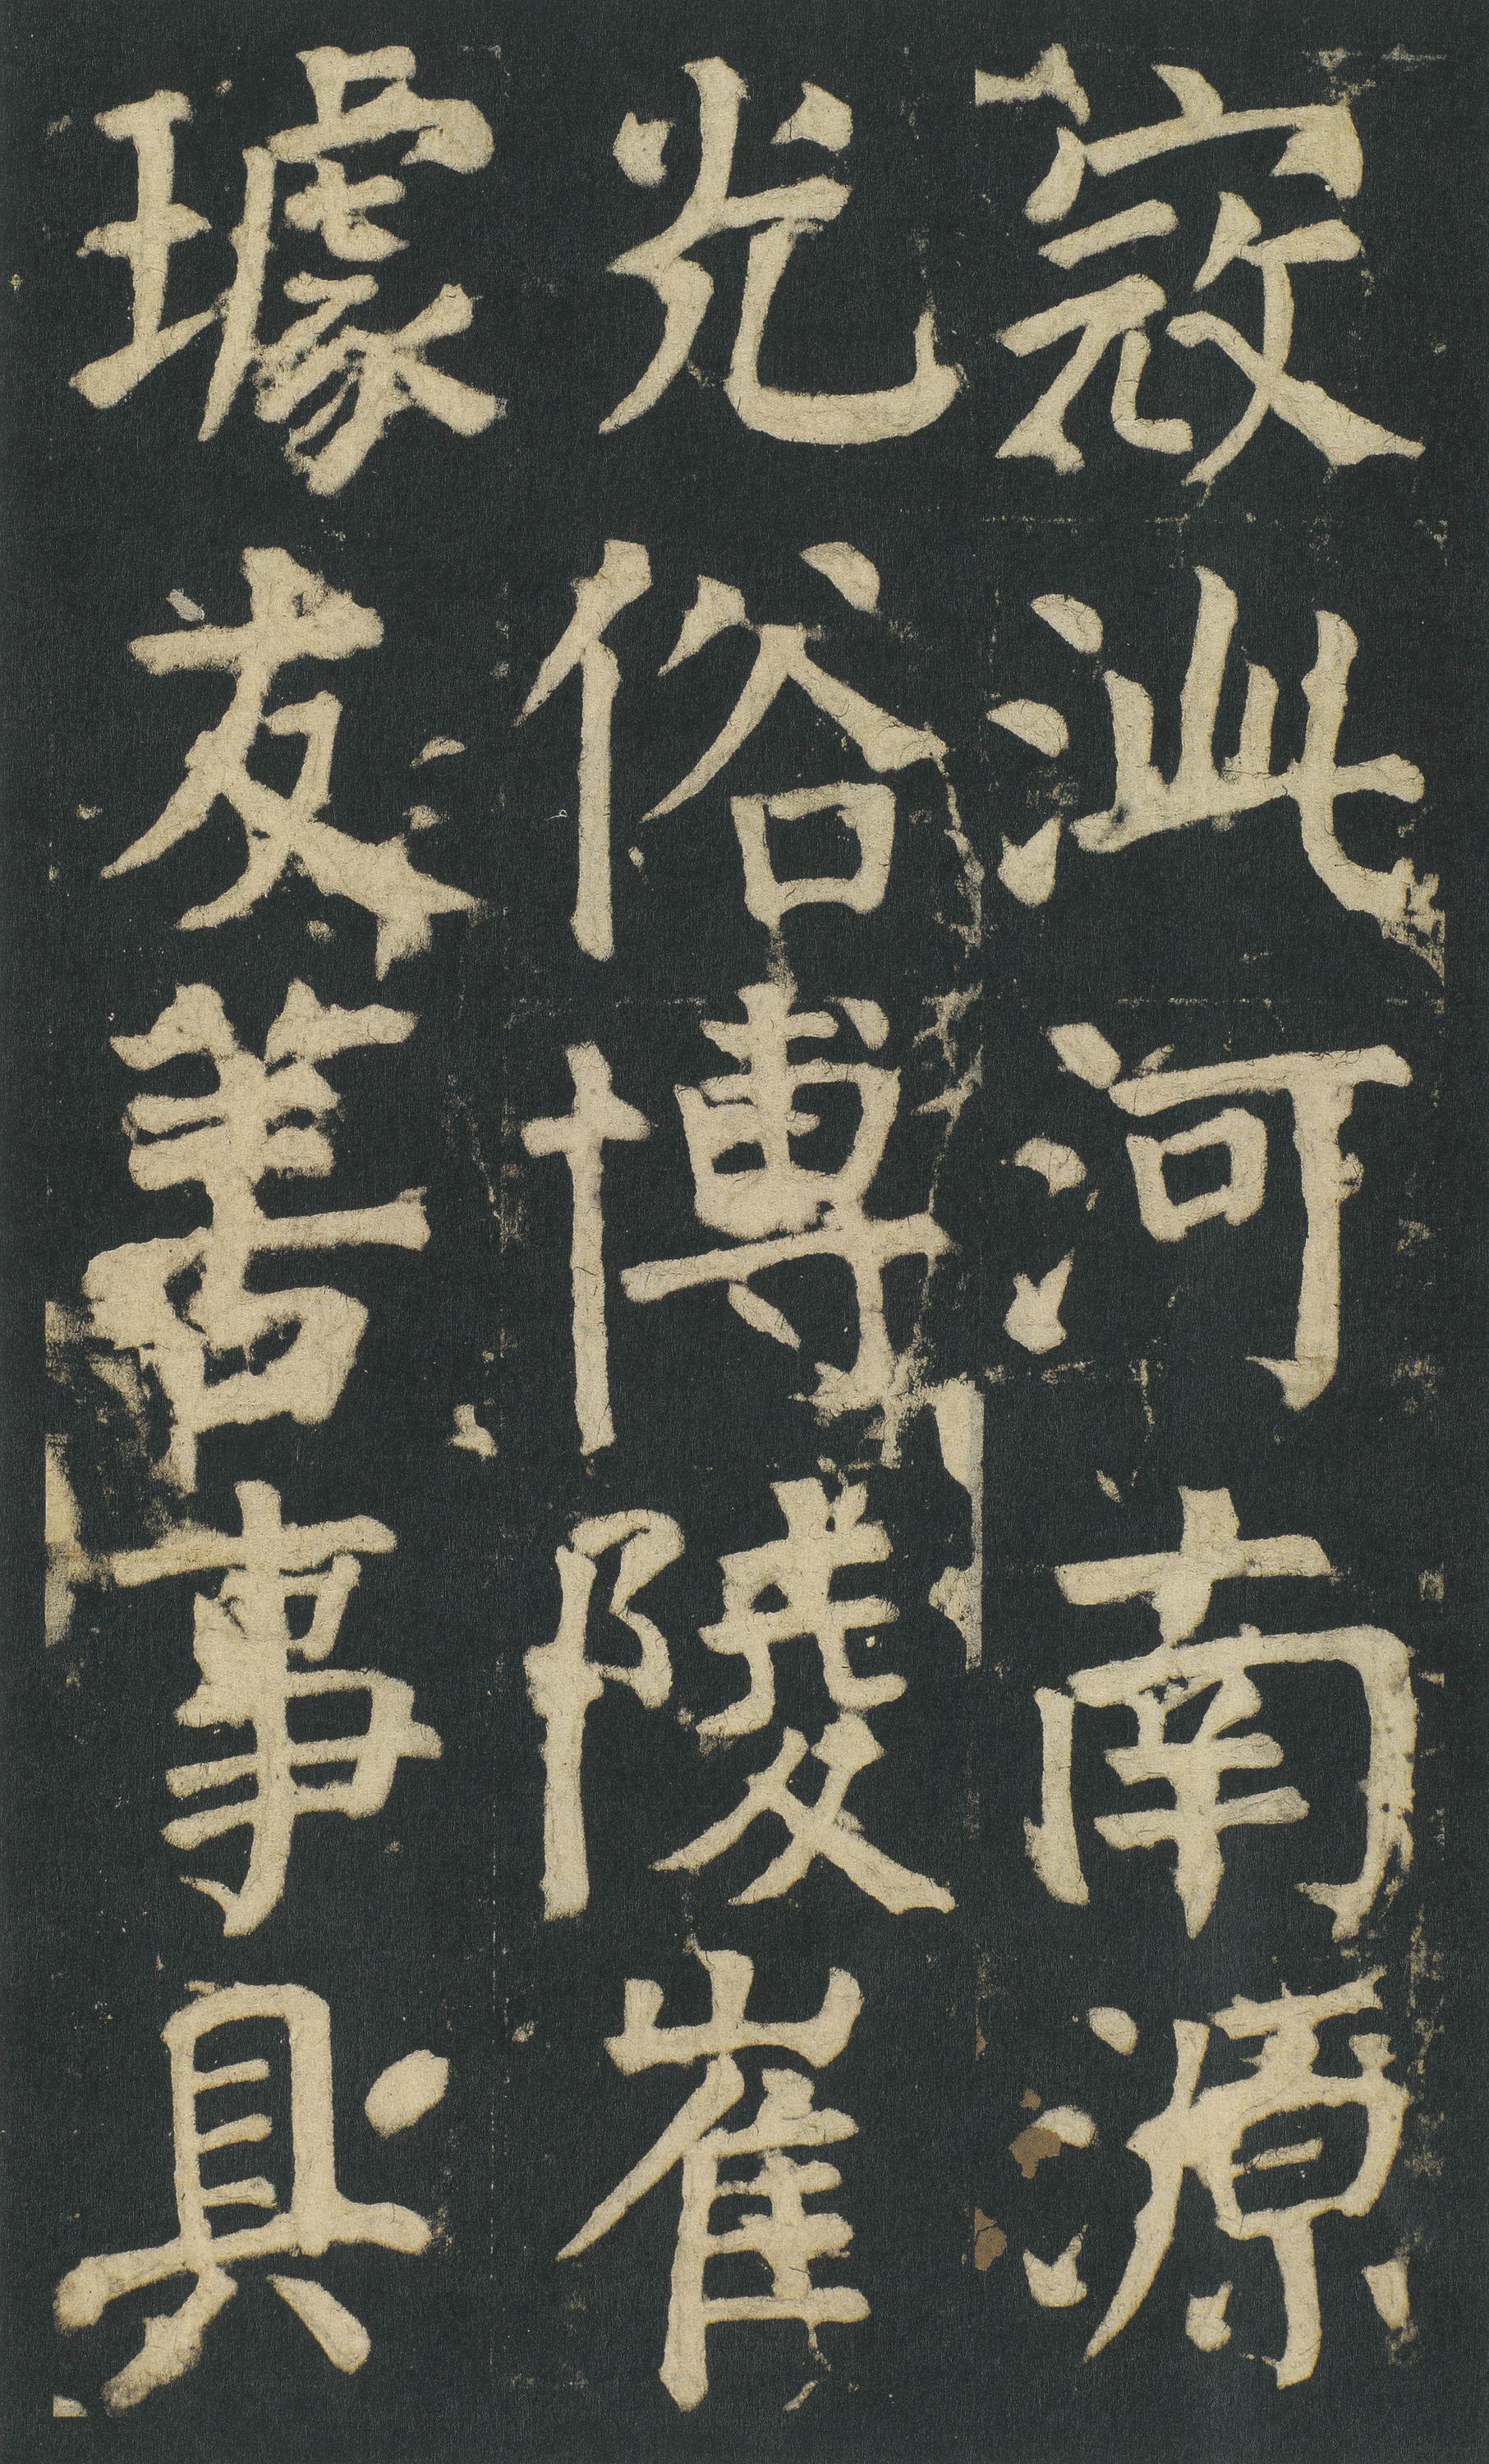 寇泚河南源
光俗博陵崔
璩友善事具